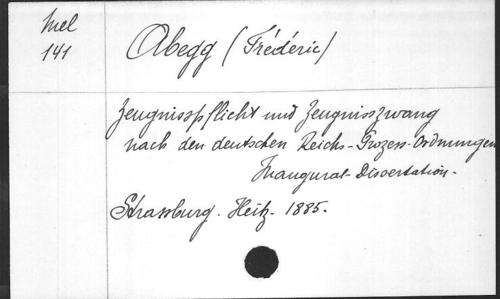 Mel
141
Abegg (Frédéric)
Zeugnisspflicht und Zeugnisszwang
nach den deutschen Reichs-Prozess-Ordnungen
Inaugural-Dissertation.
Strassburg. Heitz. 1885.